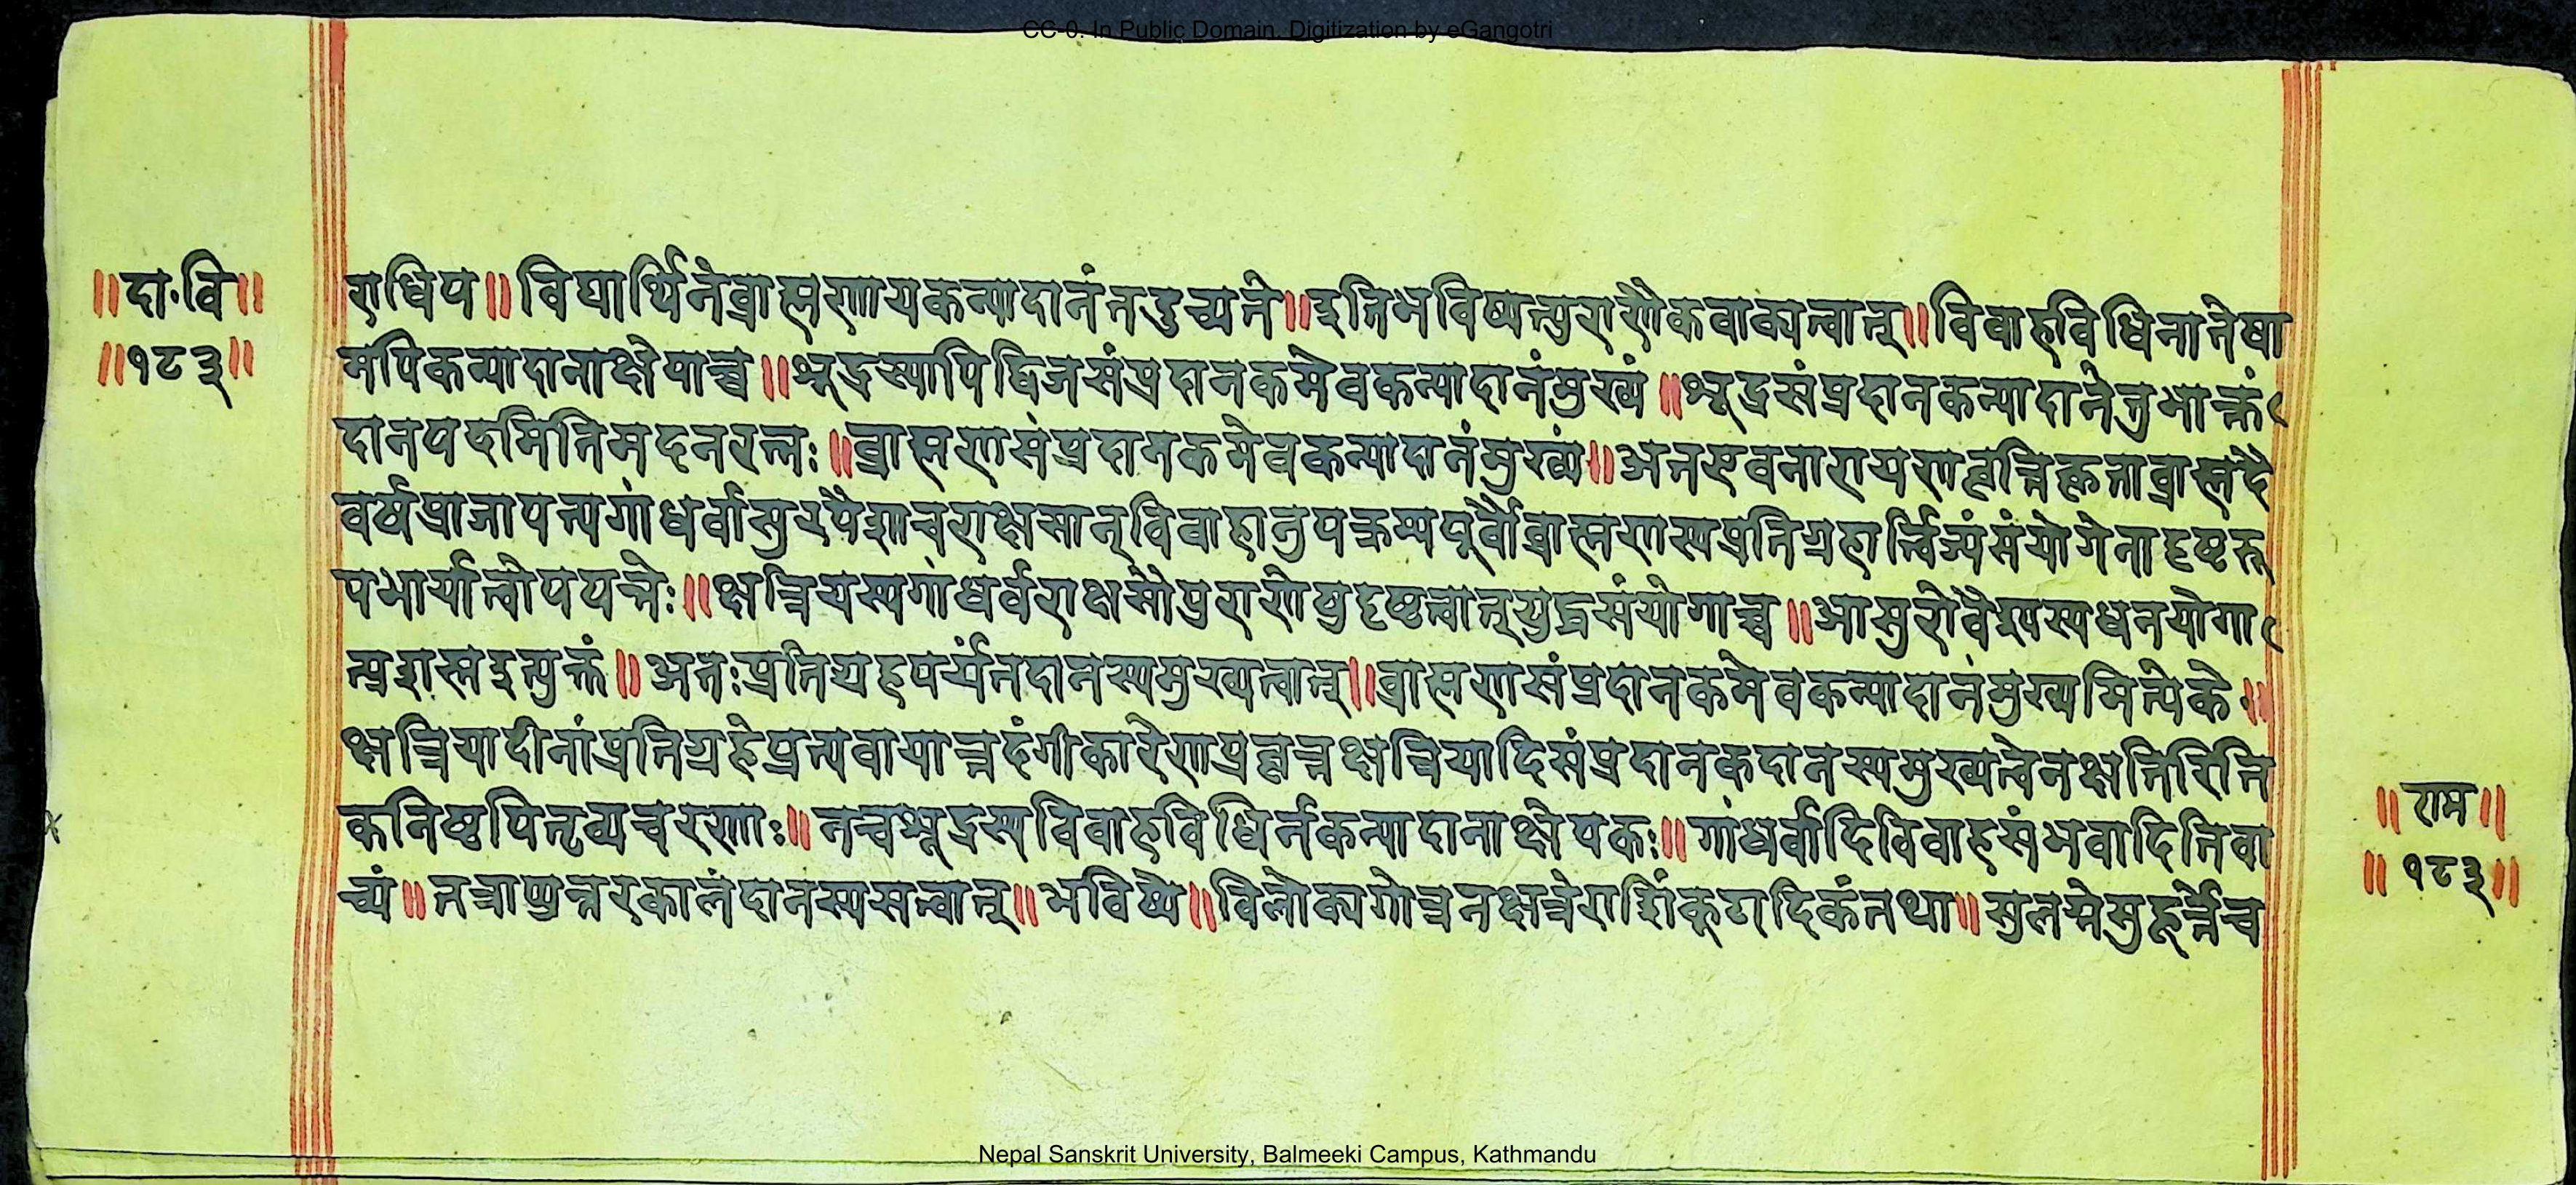 CC-0. In Public Domain. Digitization by eGangotri
॥दा·वि॥
॥१८३॥
राधिप॥विद्यार्थिनेब्राह्मणायकन्यादानंतदुच्यते॥इतिभविष्यत्पुराणैकवाक्यत्वात्॥विवाहविधिनातेषा
मपिकन्यादानाक्षेपाच्च॥शूद्रस्यापिद्विजसंप्रदानकमेवकन्यादानंमुख्यं॥शूद्रसंप्रदानकन्यादानेतुभाक्तं
दानपदमितिमदनरत्नः॥ब्राह्मणसंप्रदानकमेवकन्यादानंमुख्यं॥अतएवनारायणवृत्तिकृताब्राह्मदै
वर्षप्राजापत्यगांधर्वासुरपैशाचराक्षसान्विवाहानुपक्रम्यपूर्वौब्राह्मणस्यप्रतिग्रहार्त्विज्यंसंयोगेनादृष्टरू
पभार्यात्वोपपत्तेः॥क्षत्रियस्यगांधर्वराक्षसौपुराणेषुदृष्टत्वात्युद्धसंयोगाच्च॥आसुरोवैश्यस्यधनयोगा
त्प्रशस्तइत्युक्तं॥अतःप्रतिग्रहपर्यंतदानस्यमुख्यत्वात्॥ब्राह्मणसंप्रदानकमेवकन्यादानंमुख्यमित्येके॥
क्षत्रियादीनांप्रतिग्रहेप्रत्यवायात्तदंगीकारेणप्रवृत्तक्षत्रियादिसंप्रदानकदानस्यमुख्यत्वेनक्षतिरिति
कनिष्ठपितृव्यचरणाः॥नत्वशूद्रस्यविवाहविधिर्नकन्यादानाक्षेपकः॥गांधर्वादिविवाहसंभवादितिवा
च्यं॥तत्राप्युत्तरकालंदानस्यसत्वात्॥भविष्ये॥विलोक्यगोत्रनक्षत्रेराशिंकूटादिकंतथा॥सुलग्नेमुहूर्त्तेच
॥राम॥
॥१८३॥
Nepal Sanskrit University, Balmeeki Campus, Kathmandu